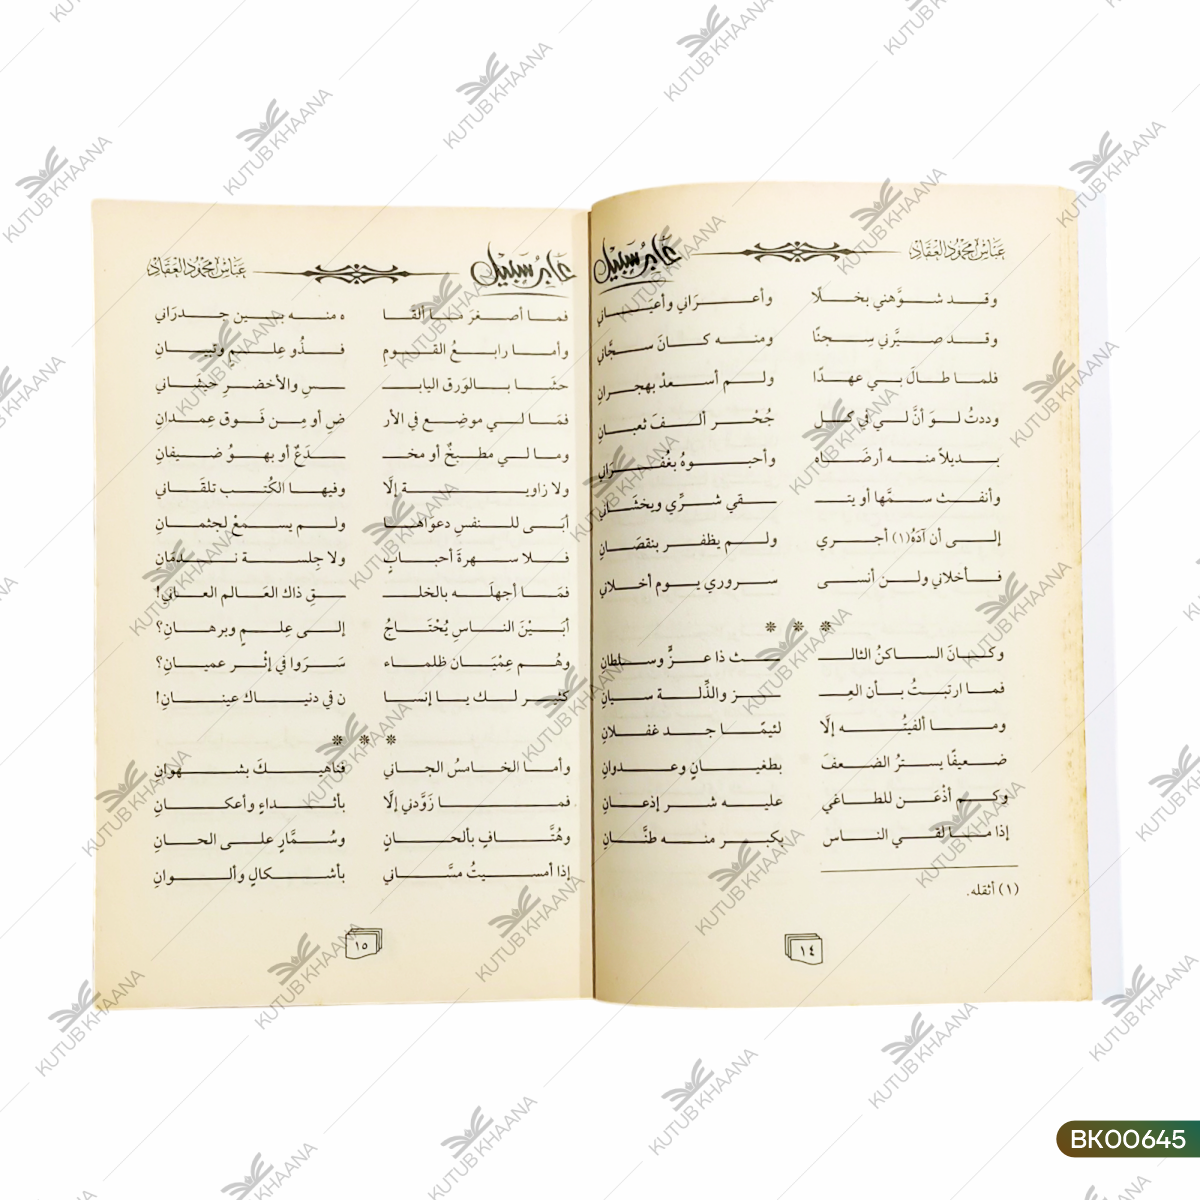 عباس محمود العقاد عابر سبيل
وقد شوَّهني بخلًا وأعراني وأعياني
وقد صيَّرني سِجنًا ومنه كانَ سجَّاني
فلما طالَ بي عهدًا ولم أسعدْ بهجرانِ
وددتُ لوَ أنَّ لي في كل جُحْر ألفَ ثعبانِ
بديلاً منه أرضَاه وأحبوهُ بغُفْرَاني
وأنفث سمَّها أو يتـ ـقي شرِّي ويخشَاني
إلى أن آدَهُ(١) أجري ولم يظفر بنقصَانِ
فأخلاني ولن أنسى سروري يوم أخلاني
* * *
وكانَ الساكنُ الثالـ ـث ذا عزٍّ وسلطانِ
فما ارتبتُ بأن العِـ ـز والذِّلة سيانِ
وما ألفيتُه إلَّا لئيمًا جد غفلانِ
ضعيفًا يسترُ الضعفَ بطغيانٍ وعدوانِ
وكم أذْعَن للطاغي عليه شر إذعانِ
إذا ما لقي الناس يكبر منه طنَّانِ
(١) أثقله.
١٤
عابر سبيل عباس محمود العقاد
فما أصغرَ ما ألقا ه منه بين جدرَاني
وأما رابعُ القومِ فذُو عِلمٍ وتبيانِ
حشَا بالوَرق اليابـ ـسِ والأخضرِ حيشاني
فمَا لي موضِع في الأر ضِ أو مِن فَوق عِمدانِ
وما لي مطبخٌ أو مخـ ـدَعٌ أو بهوُ ضيفانِ
ولا زاوية إلَّا وفيها الكُتب تلقَاني
أبَى للنفسِ دعوَاها ولم يسمعْ لجثمانِ
فلا سهرةَ أحبابٍ ولا جِلسة ندمَانِ
فمَا أجهلَه بالخلـ ـقِ ذاك العَالم العاني!
أبَيْنَ الناسِ يُحْتَاجُ إلى عِلمٍ وبرهانِ؟
وهُم عِمْيَان ظلماء سَرَوا في إثْر عميانِ؟
كثير لك يا إنسا ن في دنياك عينانِ!
* * *
وأما الخامسُ الجاني فناهيكَ بشهوانِ
فما زَوَّدني إلَّا بأثداءٍ وأعكانِ
وهُتَّافٍ بألحانٍ وسُمَّارٍ على الحانِ
إذا أمسيتُ مسَّاني بأشكالٍ وألوانِ
١٥
KUTUB KHAANA
BK00645